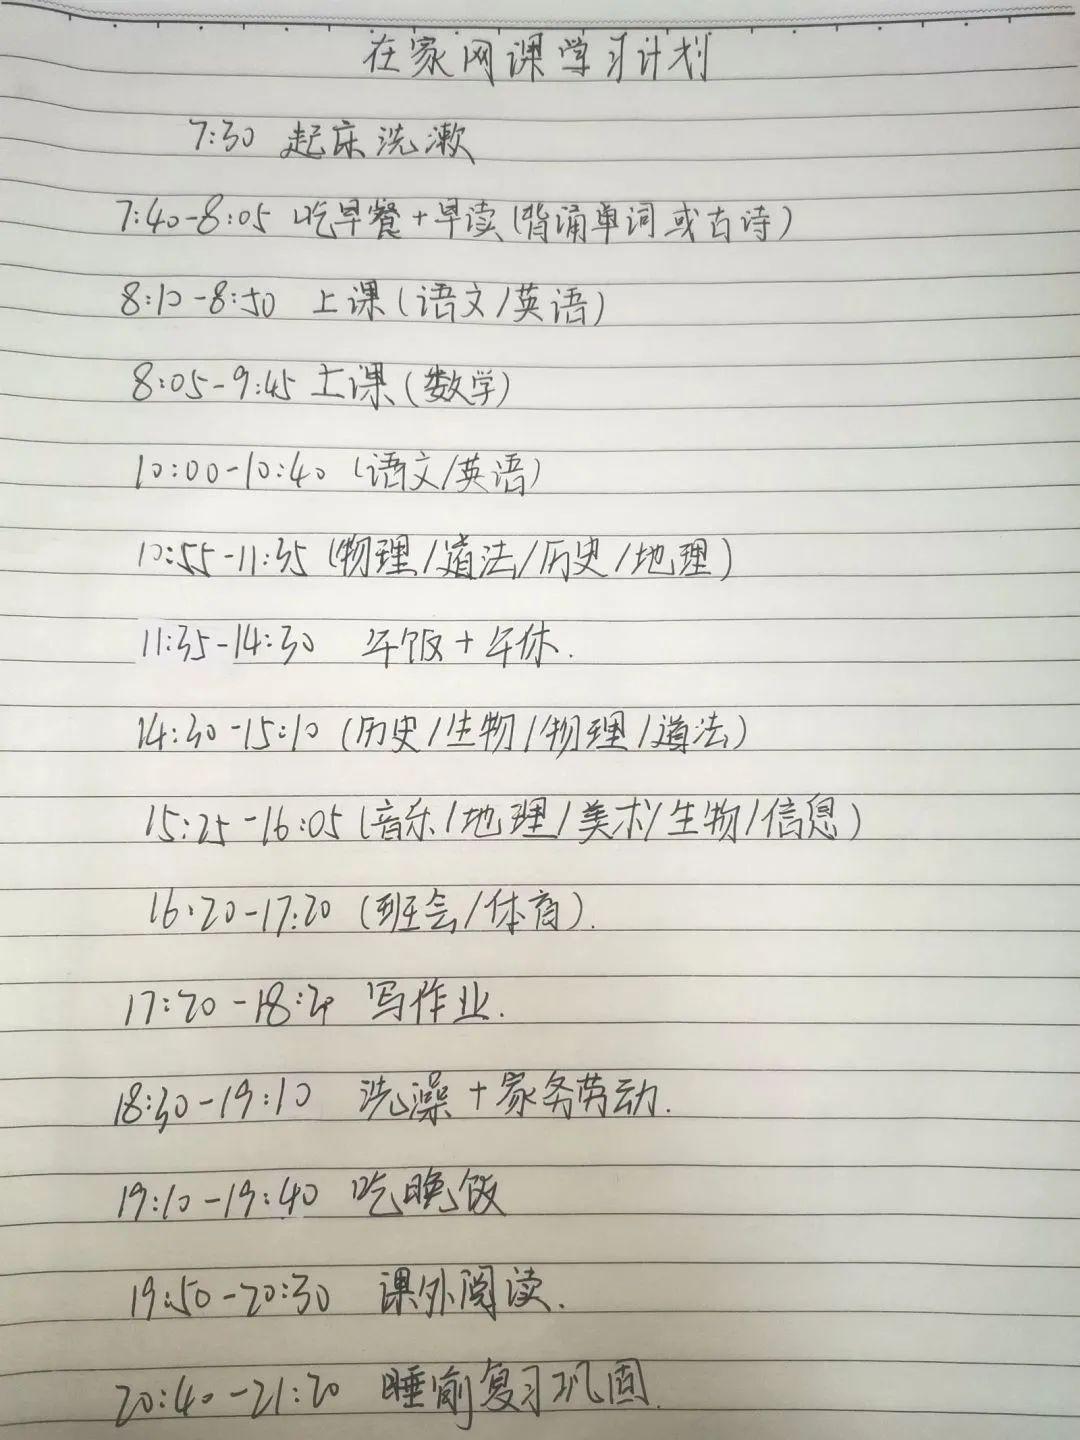 在家网课学习计划
7:30 起床洗漱
7:40-8:05 吃早餐+早读(背诵单词或古诗)
8:10-8:50 上课(语文/英语)
8:05-9:45 上课(数学)
10:00-10:40 (语文/英语)
10:55-11:35 (物理/道法/历史/地理)
11:35-14:30 午饭+午休.
14:30-15:10 (历史/生物/物理/道法)
15:25-16:05 (音乐/地理/美术/生物/信息)
16:20-17:20 (班会/体育).
17:20-18:20 写作业.
18:30-19:10 洗澡+家务劳动.
19:10-19:40 吃晚饭
19:50-20:30 课外阅读.
20:40-21:20 睡前复习巩固.